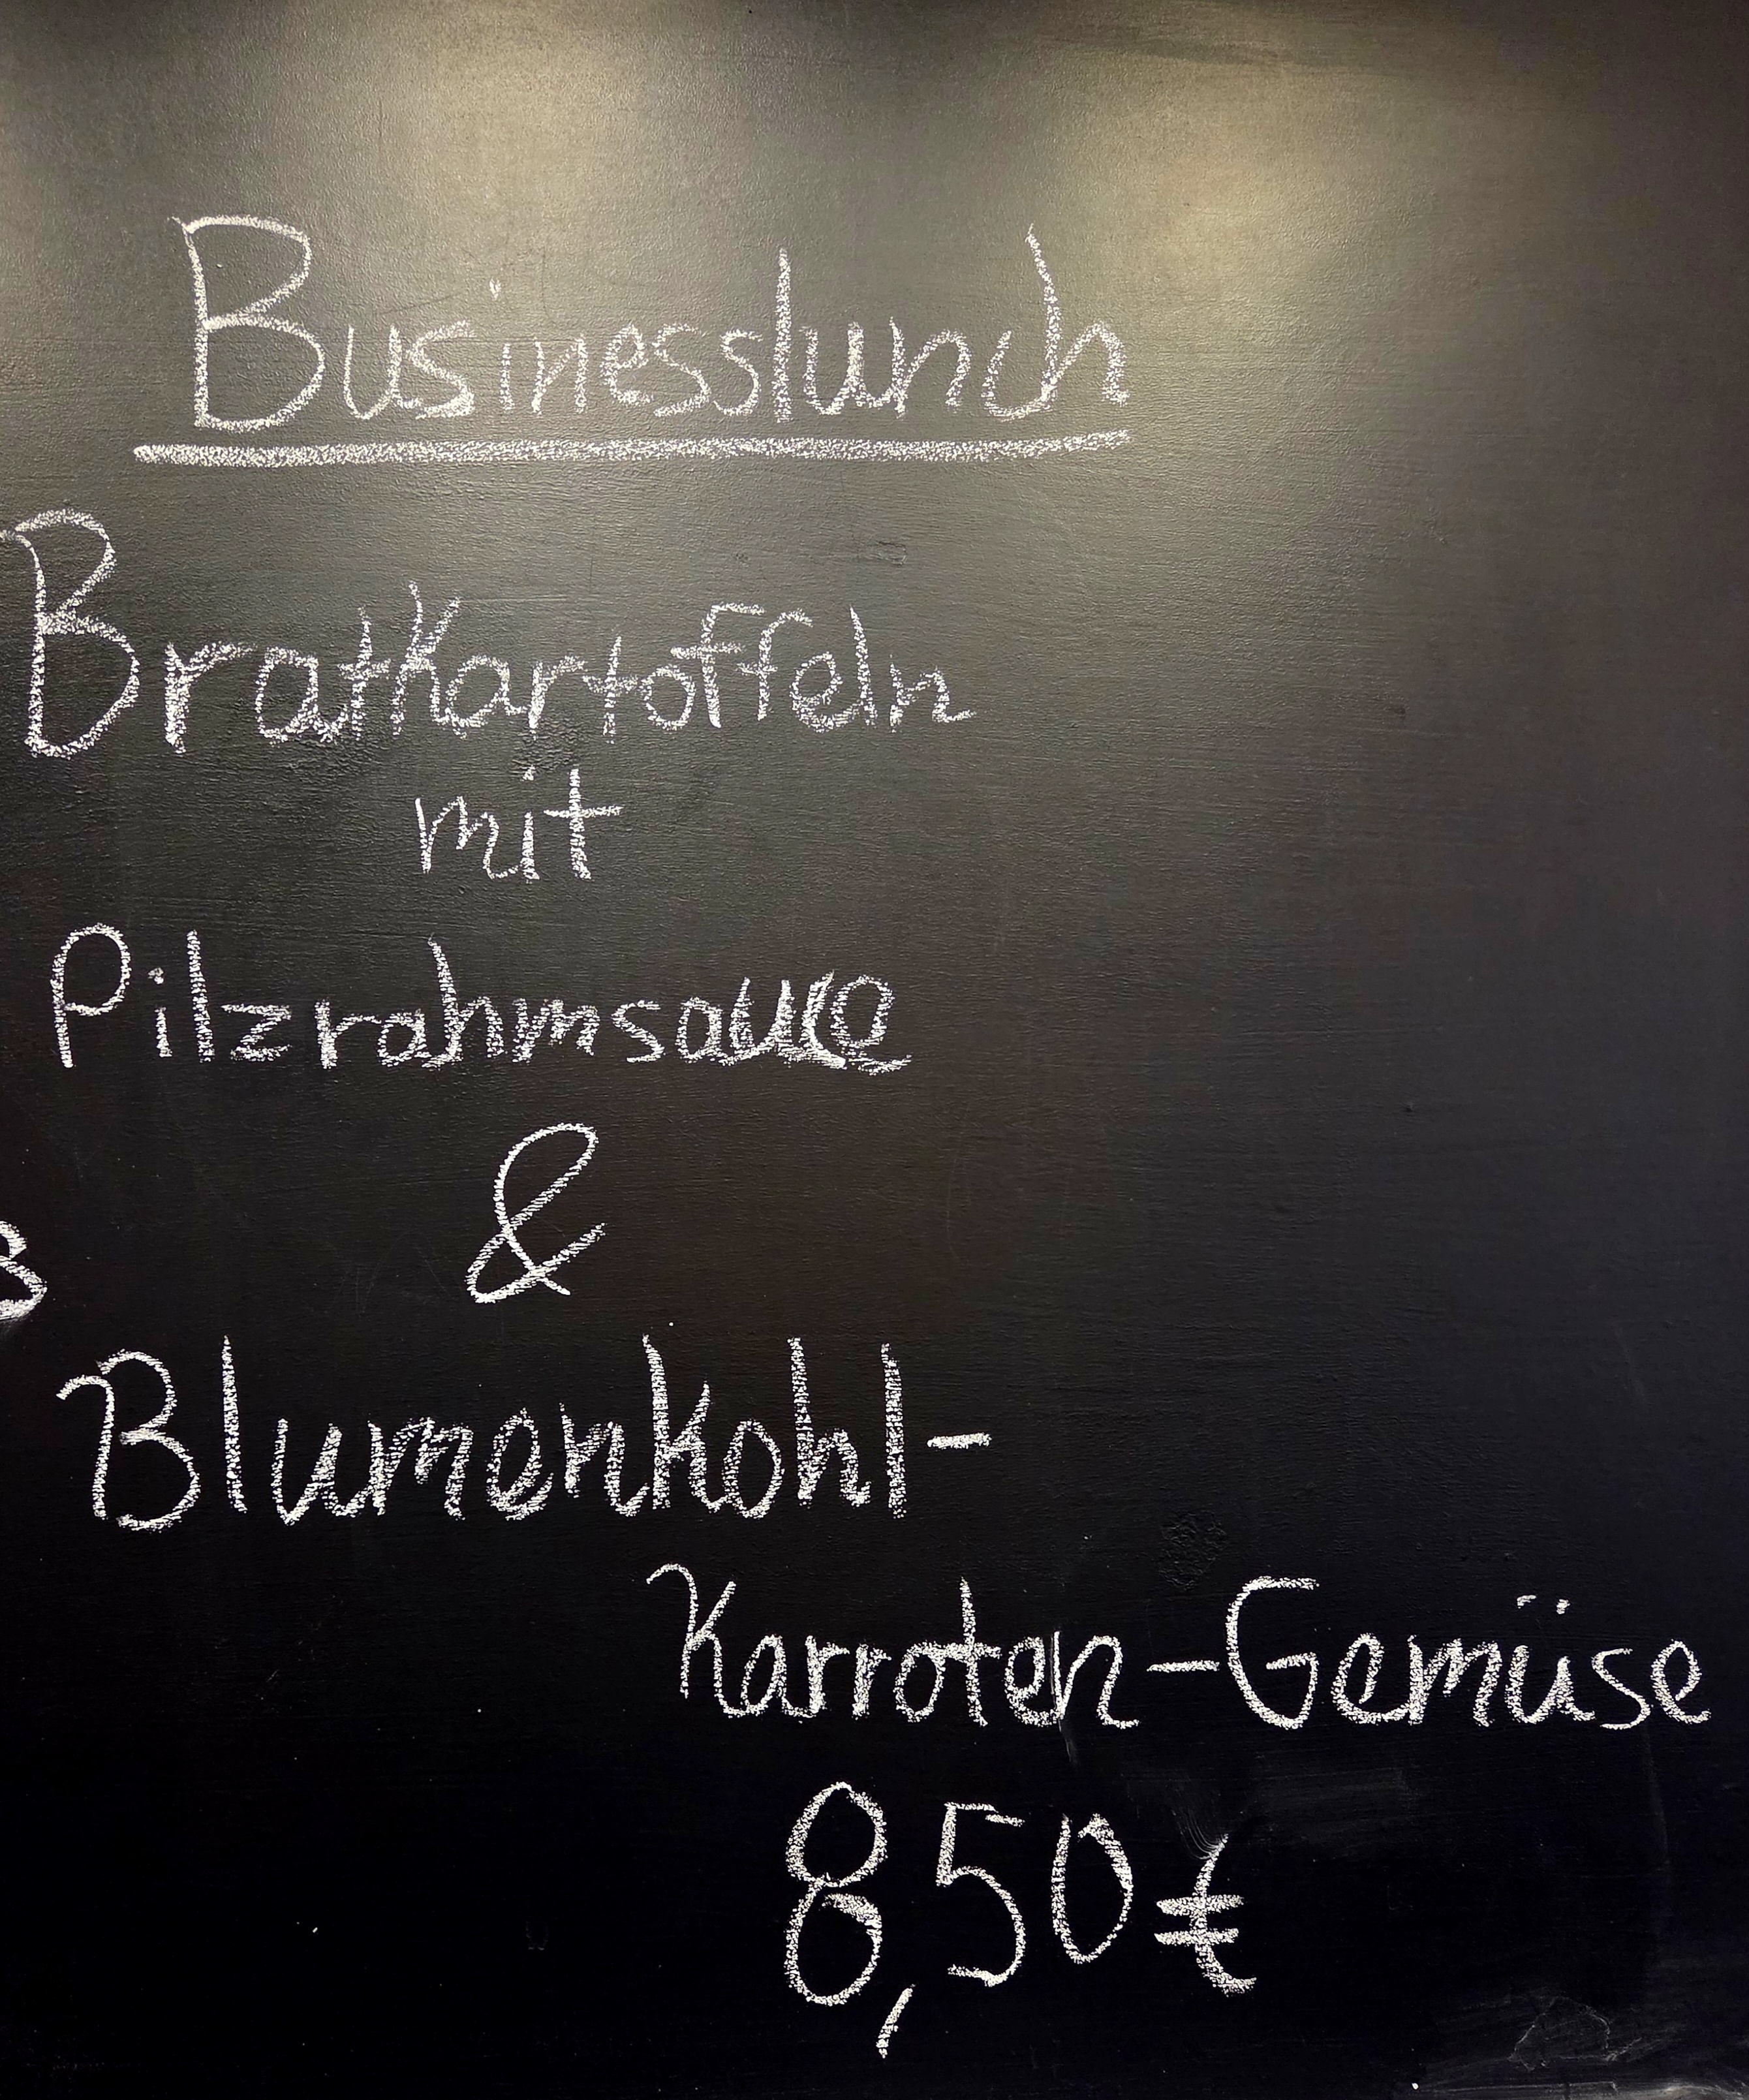 Businesslunch
Bratkartoffeln
mit
Pilzrahmsauce
&
Blumenkohl-
Karroten-Gemüse
8,50€